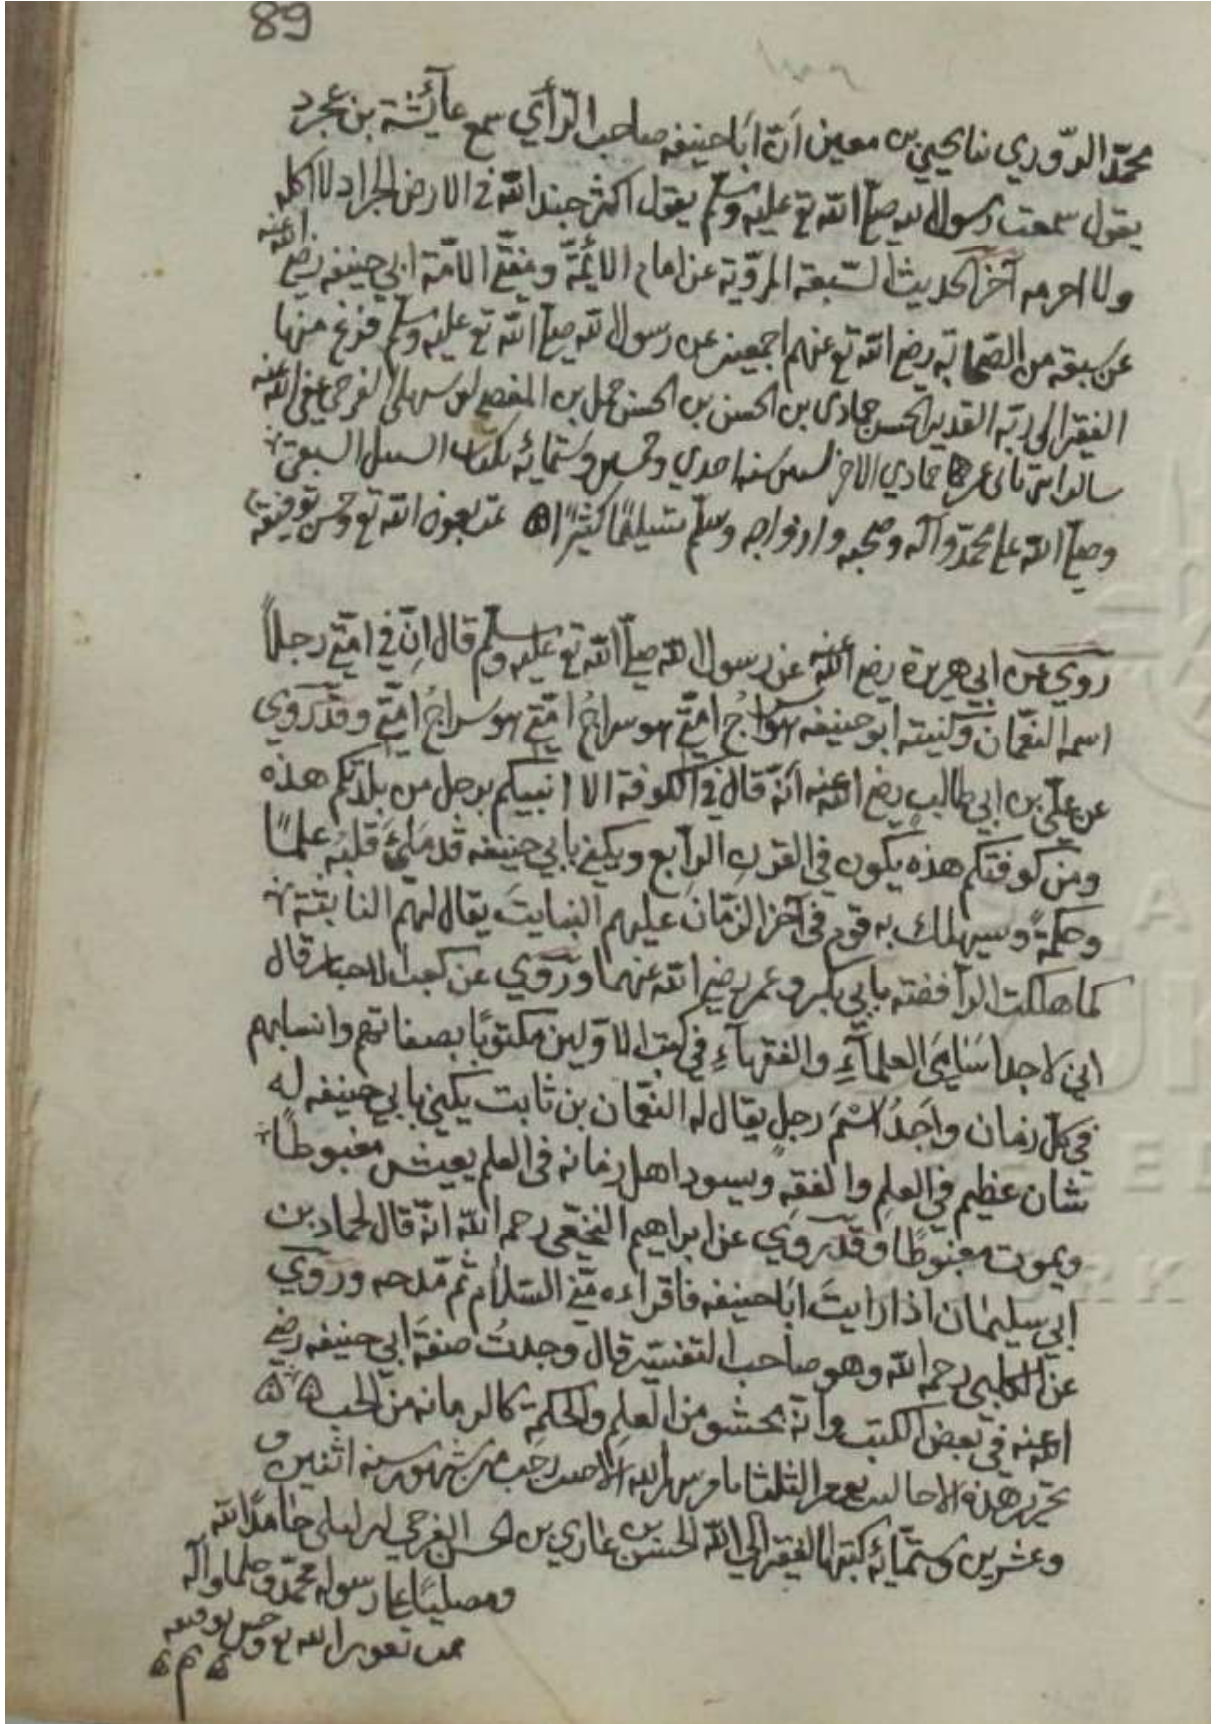 89
محمّد الدّوري نا يحيى بن معين اَنّ اَبَا حنيفه صاحب الرّأي سمع عآئشة بن عجرد
يقول سمعت رسول الله صلّى الله تع عليه وسلّم يقول اكثر جند الله في الارض الجراد لا اكله
ولا احرمه آخر الحديث السّبعة المرويّة عن امام الائمّة ومفتّي الامّة ابي حنيفه رضي الله عنه
عن سبعة من الصّحابة رضي الله تع عنهم اجمعين عن رسول الله صلّى الله تع عليه وسلّم فرغ منها
الفقير الى ربّه القدير الحسن بن الحسن بن
الاخر سنه احدي وخمسين وستمائه
وصلّى الله على محمّد وآله وصحبه وازواجه وسلّم تسليمًا كثيرًا تمت بعون الله تع وحسن توفيقه
روي عن ابي هريرة رضي الله عنه عن رسول الله صلّى الله تع عليه وسلّم قال اِنّ في امّتي رجلاً
اسمه النعّمان وكنيته ابو حنيفه هو سراج امّتي هو سراجُ امّتي هو سراجُ امّتي وقد رَوي
عن عليّ بن ابي طالبٍ رضي الله عنه اَنّه قال في الكوفة الا انبيكم برجل من بلدتكم هذه
ومن كوفتكم هذه يكون في القرن الرابع ويكنى بابي حنيفه قد مَلِئَ قلبُه علمًا
وحكمةً وسيهلك به قوم في آخر الزّمان عليهم يقال لهم
كما هلكت الرافضة بابي بكر وعمر رضي الله عنهما ورَوي عن كعب الاحبار قال
اني لاجد اسَامِيَ العلمآءِ والفقهآءِ في كتب الاوّلين مكتوبًا بصفاتهم وانسابهم
في كلّ زمان واَجدُ اسْمَ رجلٍ يقال له النعّمان بن ثابت يكنى بابي حنيفه له
شان عظيم في العلمِ والفقهِ ويسود اهل زمانه في العلم يعيش مغبوطًا
ويموت مغبوطًا وقد رَوي عن ابراهيم النخعي رحمه الله انّه قال لحماد بن
ابي سليمان اذا رايتَ ابَا حنيفه فاقراءه منّي السّلام ثم مدحه ورَوي
عن الكلبي رحمه الله وهو صاحب التفسير قال وجدتُ صفةَ ابي حنيفه رضي
الله عنه في بعض الكتب وانّه محشو من العلمِ والحكمة كالرمانه من الحب
تحرير هذه رجب من شهور سنه اثنين و
وعشرين وستمّائه كتبها الفقير الى الله الحسن بن غازي بن الحسن حامدًا لله
ومصليًا على رسوله محمّد وآله
تمت بعون الله تع وحسن توفيقه
م